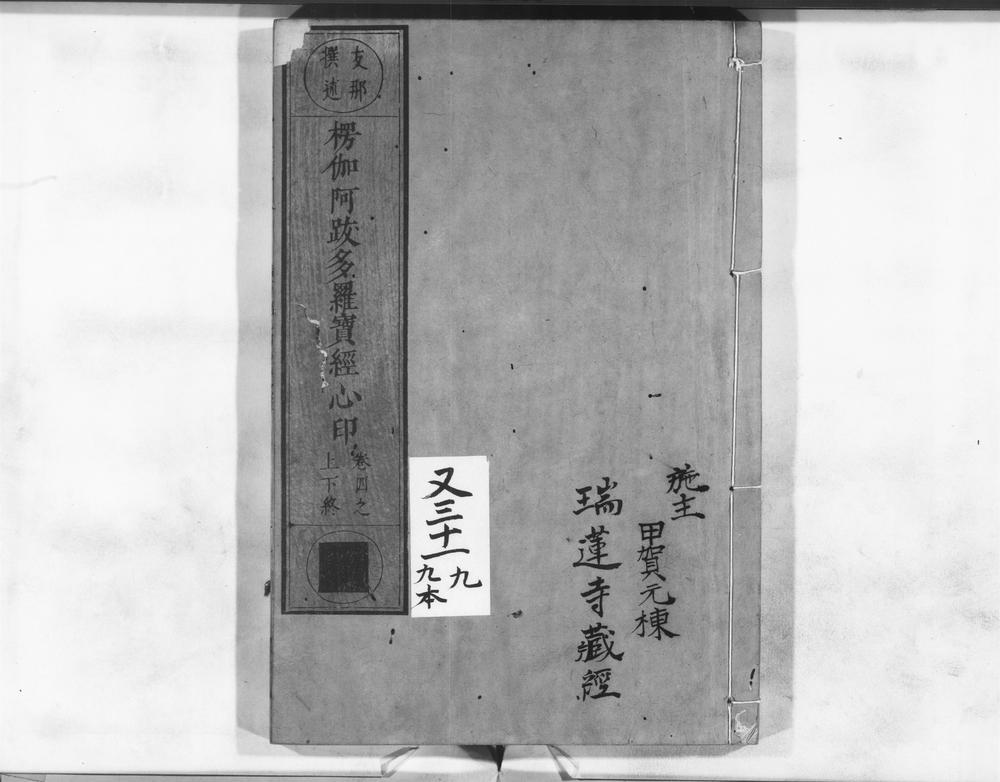 施主
甲賀元棟
瑞蓮寺藏經
又三十一
九
九本
支那
撰述
楞伽阿跋多羅寶經心印
卷四之
上下終